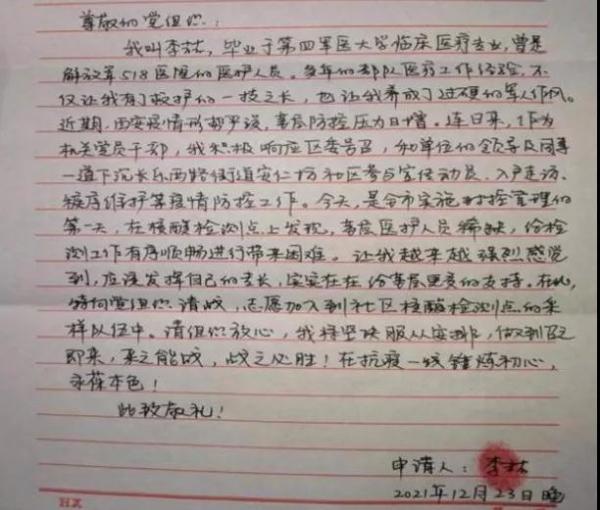 尊敬的党组织:
我叫李喆,毕业于第四军医大学临床医疗专业,曾是
解放军518医院的医护人员。多年的部队医疗工作经验,不
仅让我有了救护的一技之长,也让我养成了过硬的军人作风。
近期,西安疫情形势严峻,基层防控压力日增。连日来,作为
机关党员干部,我积极响应区委号召,和单位的领导及同事
一道下沉长乐西路街道安仁坊社区参与宣传动员、入户走访、
秩序维护等疫情防控工作。今天,是全市实施封控管理的
第一天,在核酸检测点上发现,基层医护人员稀缺,给检
测工作有序顺畅进行带来困难。让我越来越强烈感觉
到,应该发挥自己的专长,实实在在给基层更多的支持。在此,
特向党组织请战,志愿加入到社区核酸检测点的采
样队伍中。请组织放心,我将坚决服从安排,做到召之
即来,来之能战,战之必胜!在抗疫一线锤炼初心,
永葆本色!
此致敬礼!
申请人:李喆
2021年12月23日晚
HX